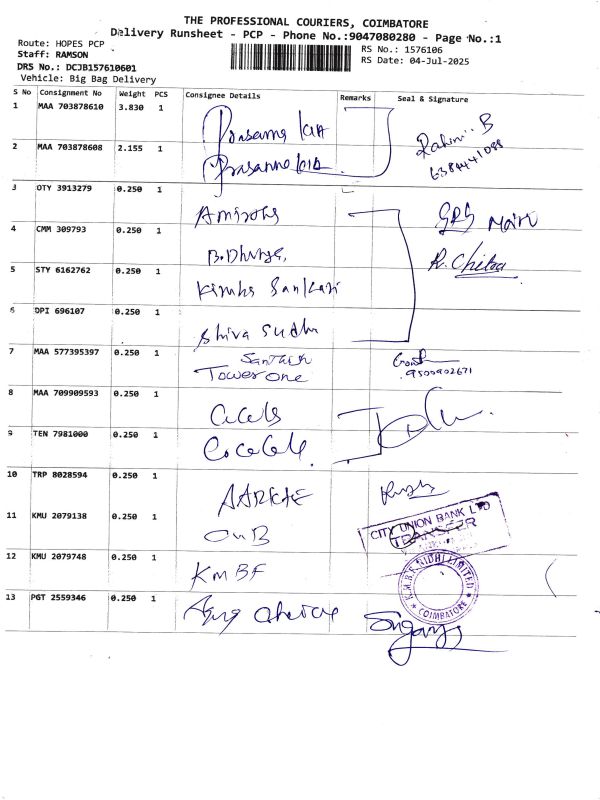 THE PROFESSIONAL COURIERS, COIMBATORE
Delivery Runsheet - PCP - Phone No.:9047080280 - Page No.:1
Route: HOPES PCP
RS No.: 1576106
Staff: RAMSON
RS Date: 04-Jul-2025
DRS No.: DCJB157610601
Vehicle: Big Bag Delivery
S No Consignment No Weight PCS Consignee Details Remarks Seal & Signature
1 MAA 703878610 3.830 1 Prasanna
2 MAA 703878608 2.155 1 Prasanna
B
3 OTY 3913279 0.250 1
4 CMM 309793 0.250 1 B.Dhivya,
R. Chitra
5 STY 6162762 0.250 1
6 DPI 696107 0.250 1 Shiva Sudhi
7 MAA 577395397 0.250 1 Santhosh
Tower one
9500902671
8 MAA 709909593 0.250 1
9 TEN 7981000 0.250 1
10 TRP 8028594 0.250 1
11 KMU 2079138 0.250 1 CUB
CITY UNION BANK LTD
TRANSFER
12 KMU 2079748 0.250 1 KMBF
K.M.B.F. NIDHI LIMITED
COIMBATORE
13 PGT 2559346 0.250 1